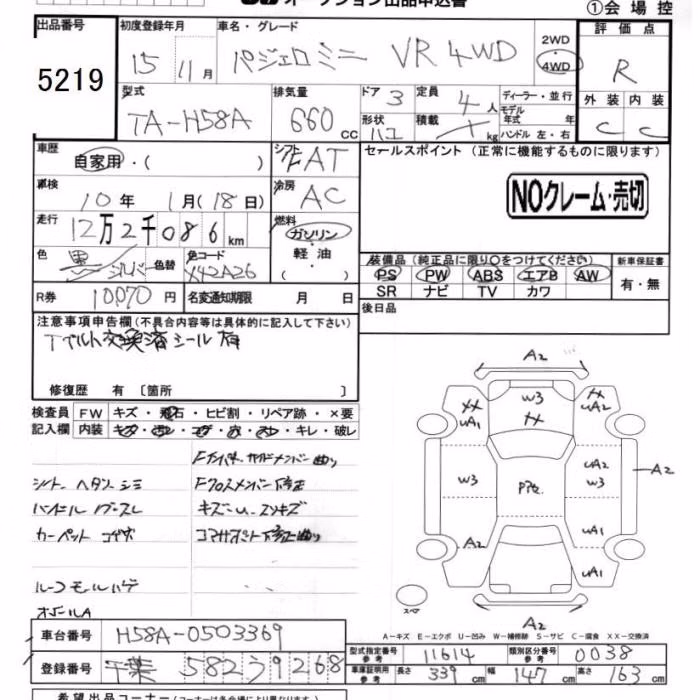 オークション出品申込書
①会場控
出品番号
5219
初度登録年月
15年11月
車名・グレード
パジェロミニ VR 4WD
2WD
4WD
評価点
R
外装 内装
C C
型式
TA-H58A
排気量
660cc
ドア 3
形状
定員 4人
積載 kg
ディーラー・並行
モデル
年式 年
ハンドル 左・右
車歴
自家用・( )
シフト FAT
セールスポイント (正常に機能するものに限ります)
NOクレーム・売切
車検
10年 1月(18日)
冷房 AC
走行
12万2千086km
燃料
ガソリン
軽油
( )
色
黒/シルバー
色替
色コード
X42A26
装備品(純正品に限り〇をつけてください)
PS PW ABS エアB AW
SR ナビ TV カワ
新車保証書
有・無
R券 10070円
名変通知期限 月 日
後日品
注意事項申告欄(不具合内容等は具体的に記入して下さい)
Tベルト交換済シール有
修復歴 有 〔箇所 〕
検査員
記入欄
FW キズ・飛石・ヒビ割・リペア跡・×要
内装 キズ・・コゲ・穴・・キレ・破レ
シート ヘタリ シミ
ハンドル
カーペット コゲ穴
ルーフモールハゲ
Fクロスメンバー
A2
W3
XX
XX
UA1
XX
UA2
W3
P穴
UA2
W3
A2
A2
UA1
UA1
スペア
A2
A-キズ E-エクボ U-凹み W-補修跡 S-サビ C-腐食 XX-交換済
車台番号 H58A-0503369
登録番号 千葉 582 ヲ 9268
型式指定番号
参考
11614
類別区分番号
参考
0038
車庫証明用
参考
長さ 339cm 幅 147cm 高さ 163cm
希望出品コーナー